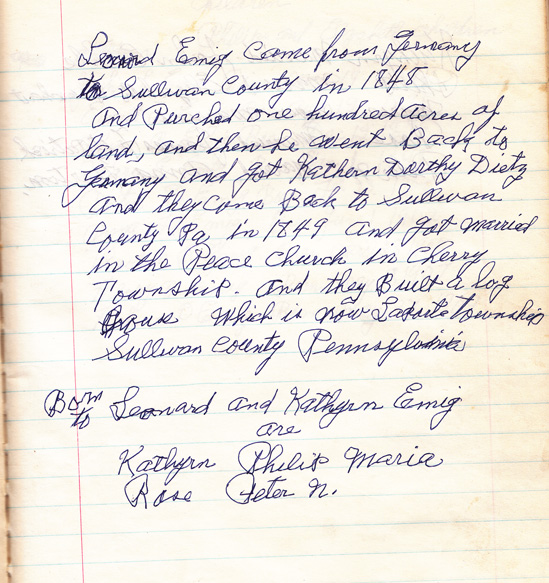 Leonard Emig come from Germany
to Sullivan County in 1848
and Purched one hundred acres of
land, and then he went Back to
Germany and got Kathern Dorthy Dietz
and they come Back to Sullivan
County Pa in 1849 and got married
in the Peace Church in Cherry
Township. and they Built a log
house which is now Laporte township
Sullivan County Pennsylvania
Born to Leonard and Kathyrn Emig
are
Kathyrn Philip Maria
Rose Peter N.